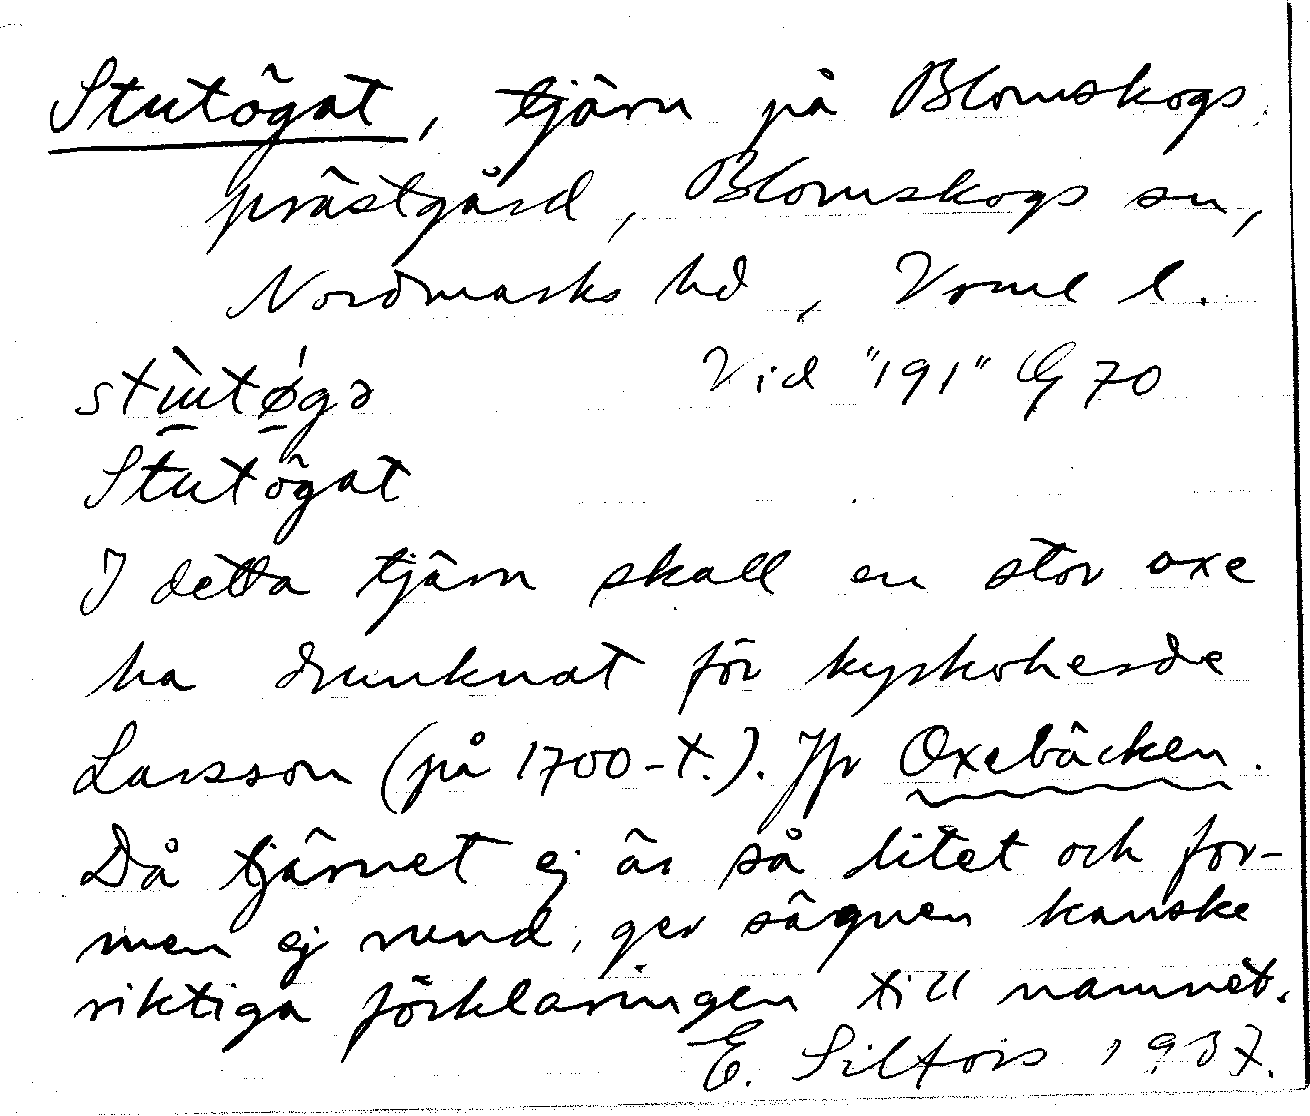 Stutögat, tjärn på Blomskogs
prästgård, Blomskogs sn,
Nordmarks hd, Vrml l.
Vid "191" G 70
Stutögat
I detta tjärn skall en stor oxe
ha drunknat för kyrkoherde
Larsson (på 1700-t.). Jfr Oxebäcken.
Då tjärnet ej är så litet och for-
men ej rund, ger sägnen kanske
riktiga förklaringen till namnet.
E. Silfors 1937.